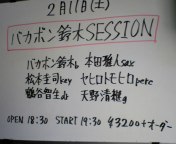 2月11日(土)
バカボン鈴木SESSION
バカボン鈴木b 本田雅人sax
松本圭司key ヤヒロトモヒロperc
鶴谷智生ds 天野清継g
OPEN 18:30 START 19:30 ¥3200+オーダー